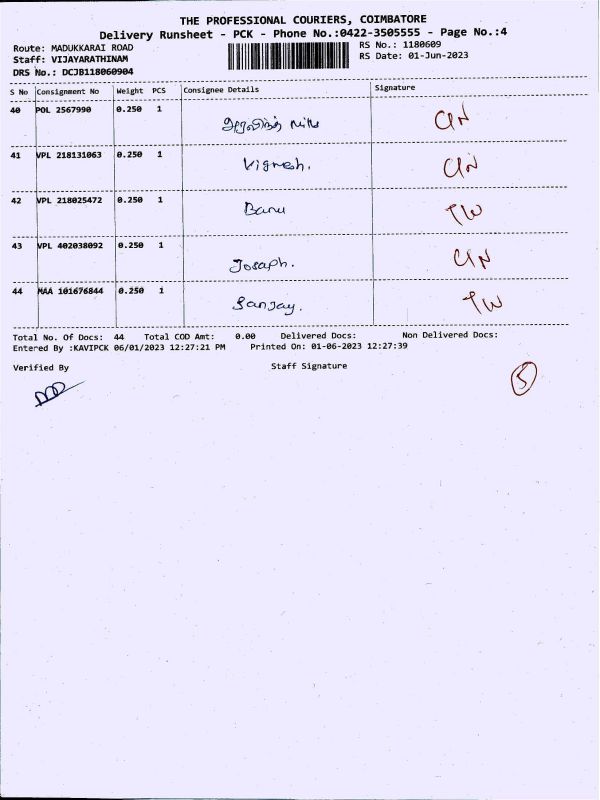 THE PROFESSIONAL COURIERS, COIMBATORE
Delivery Runsheet - PCK - Phone No.:0422-3505555 - Page No.:4
Route: MADUKKARAI ROAD RS No.: 1180609
Staff: VIJAYARATHINAM RS Date: 01-Jun-2023
DRS No.: DCJB118060904
S No Consignment No Weight PCS Consignee Details Signature
40 POL 2567990 0.250 1
41 VPL 218131063 0.250 1 Vignesh. CIN
42 VPL 218025472 0.250 1 Banu TW
43 VPL 402038092 0.250 1 Joseph. CIN
44 MAA 101676844 0.250 1 Sanjay. TW
Total No. Of Docs: 44 Total COD Amt: 0.00 Delivered Docs: Non Delivered Docs:
Entered By :KAVIPCK 06/01/2023 12:27:21 PM Printed On: 01-06-2023 12:27:39
Verified By Staff Signature
5